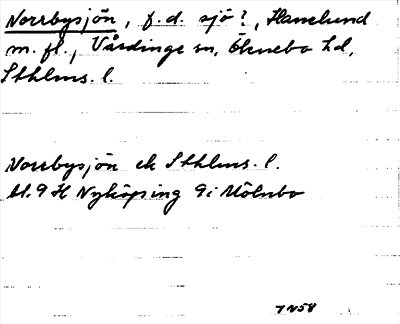 Norrbysjön, f.d. sjö?, Hanelund
m.fl., Vårdinge sn, Öknebo hd,
Sthlms. l.
Norrbysjön ek Sthlms. l.
bl. 9 H Nyköping 9i Mölnbo
7N58